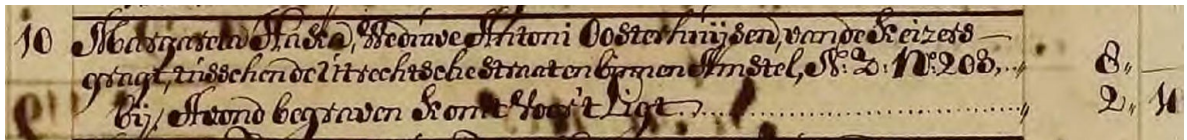 10 Margareta Haska, Weduwe Antoni Oosterhuijsen, van de Keizers
gragt, tusschen de Utrechtschestraat en binnen Amstel, N: Z: N.º 208, 8,,
bij Avond begraven komt voor 't Ligt 2,,